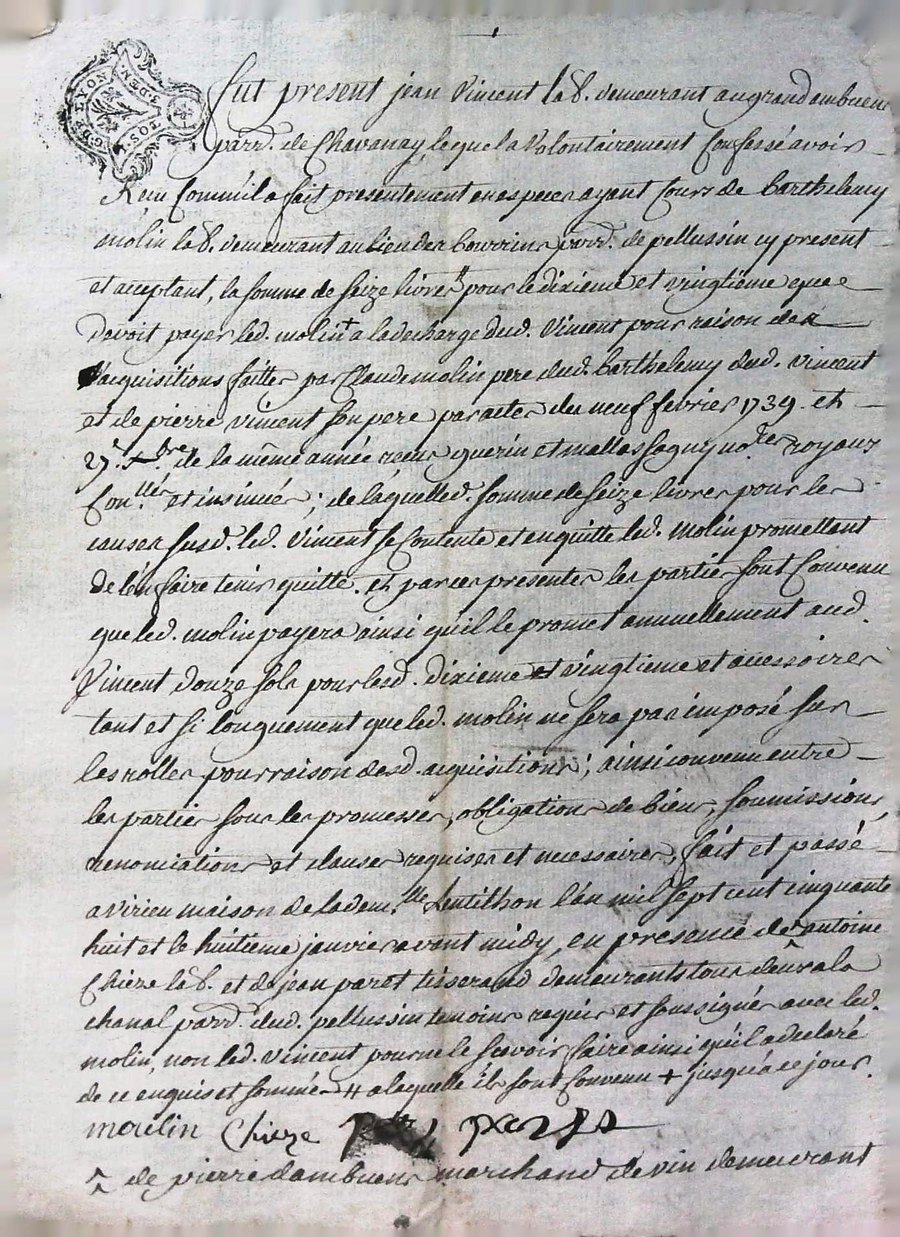 G. DE LYON
DEN. POS.
fut present jean Vincent lab. demeurant au grand ambuent
parr. de Chavanay, lequel a Volontairement Confessé avoir
Receu Comme il a fait presentement en especes ayant Cours de barthelemy
molin lab. demeurant au lieu des bourrins parr. de pellussin cy present
et acceptant, la somme de seize livres pour le dixieme et vingtiême que
devoit payer led. molin a la decharge dud. Vincent pour raison de
acquisitions faittes par Claude molin pere dud. barthelemy dud. Vincent
et de pierre Vincent son pere par actes du neuf fevrier 1739. et
27e. de la même année receus guerin et mallassagny no.res royaux
Con.llers et insinués; de laquelle d. somme de seize livres pour les
causes susd. led. Vincent se Contente et en quitte led. molin promettant
de l'en faire tenir quitte. et par ces presentes les parties sont Convenu
que led. molin payera ainsi qu'il le promet annuellement aud.
Vincent douze sols pour lesd. dixieme et vingtieme et accessoires
tant et si longuement que led. molin ne sera pas imposé sur
les rolles pour raison desd. acquisitions; ainsi convenu entre
les parties sous les promesses, obligations de biens, soumissions,
renonciations et clauses requises et necessaires, fait et passé
a virieu maison de la dem.lle Lentilhon l'an mil sept cent cinquante
huit et le huitieme janvier avant midy, en presence de ^ antoine
Chieze lab. et de jean paret tisserand demeurants tous deux a la
chanal parr. dud. pellussin temoins requis et soussignés avec led.
molin, non led. Vincent pour ne le sçavoir faire ainsi qu'il a declaré
de ce enquis et sommé # a laquelle ils sont Convenu + jusqu'a ce jour.
moulin Chieze
^ de pierre dambuent marchand de vin demeurant